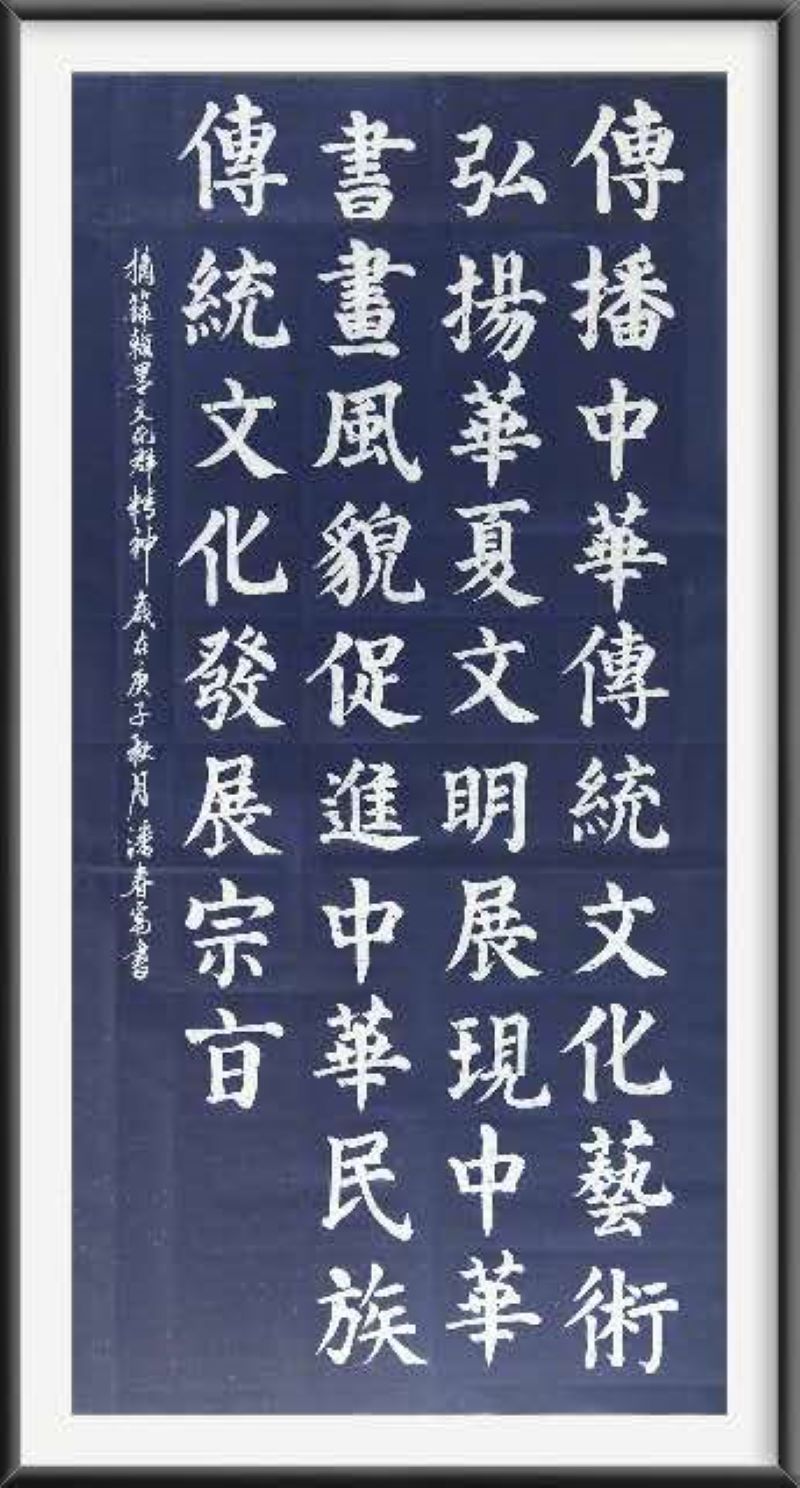 傳播中華傳統文化藝術
弘揚華夏文明展現中華
書畫風貌促進中華民族
傳統文化發展宗旨
摘錄翰墨文化群精神歲在庚子秋月潘春富書